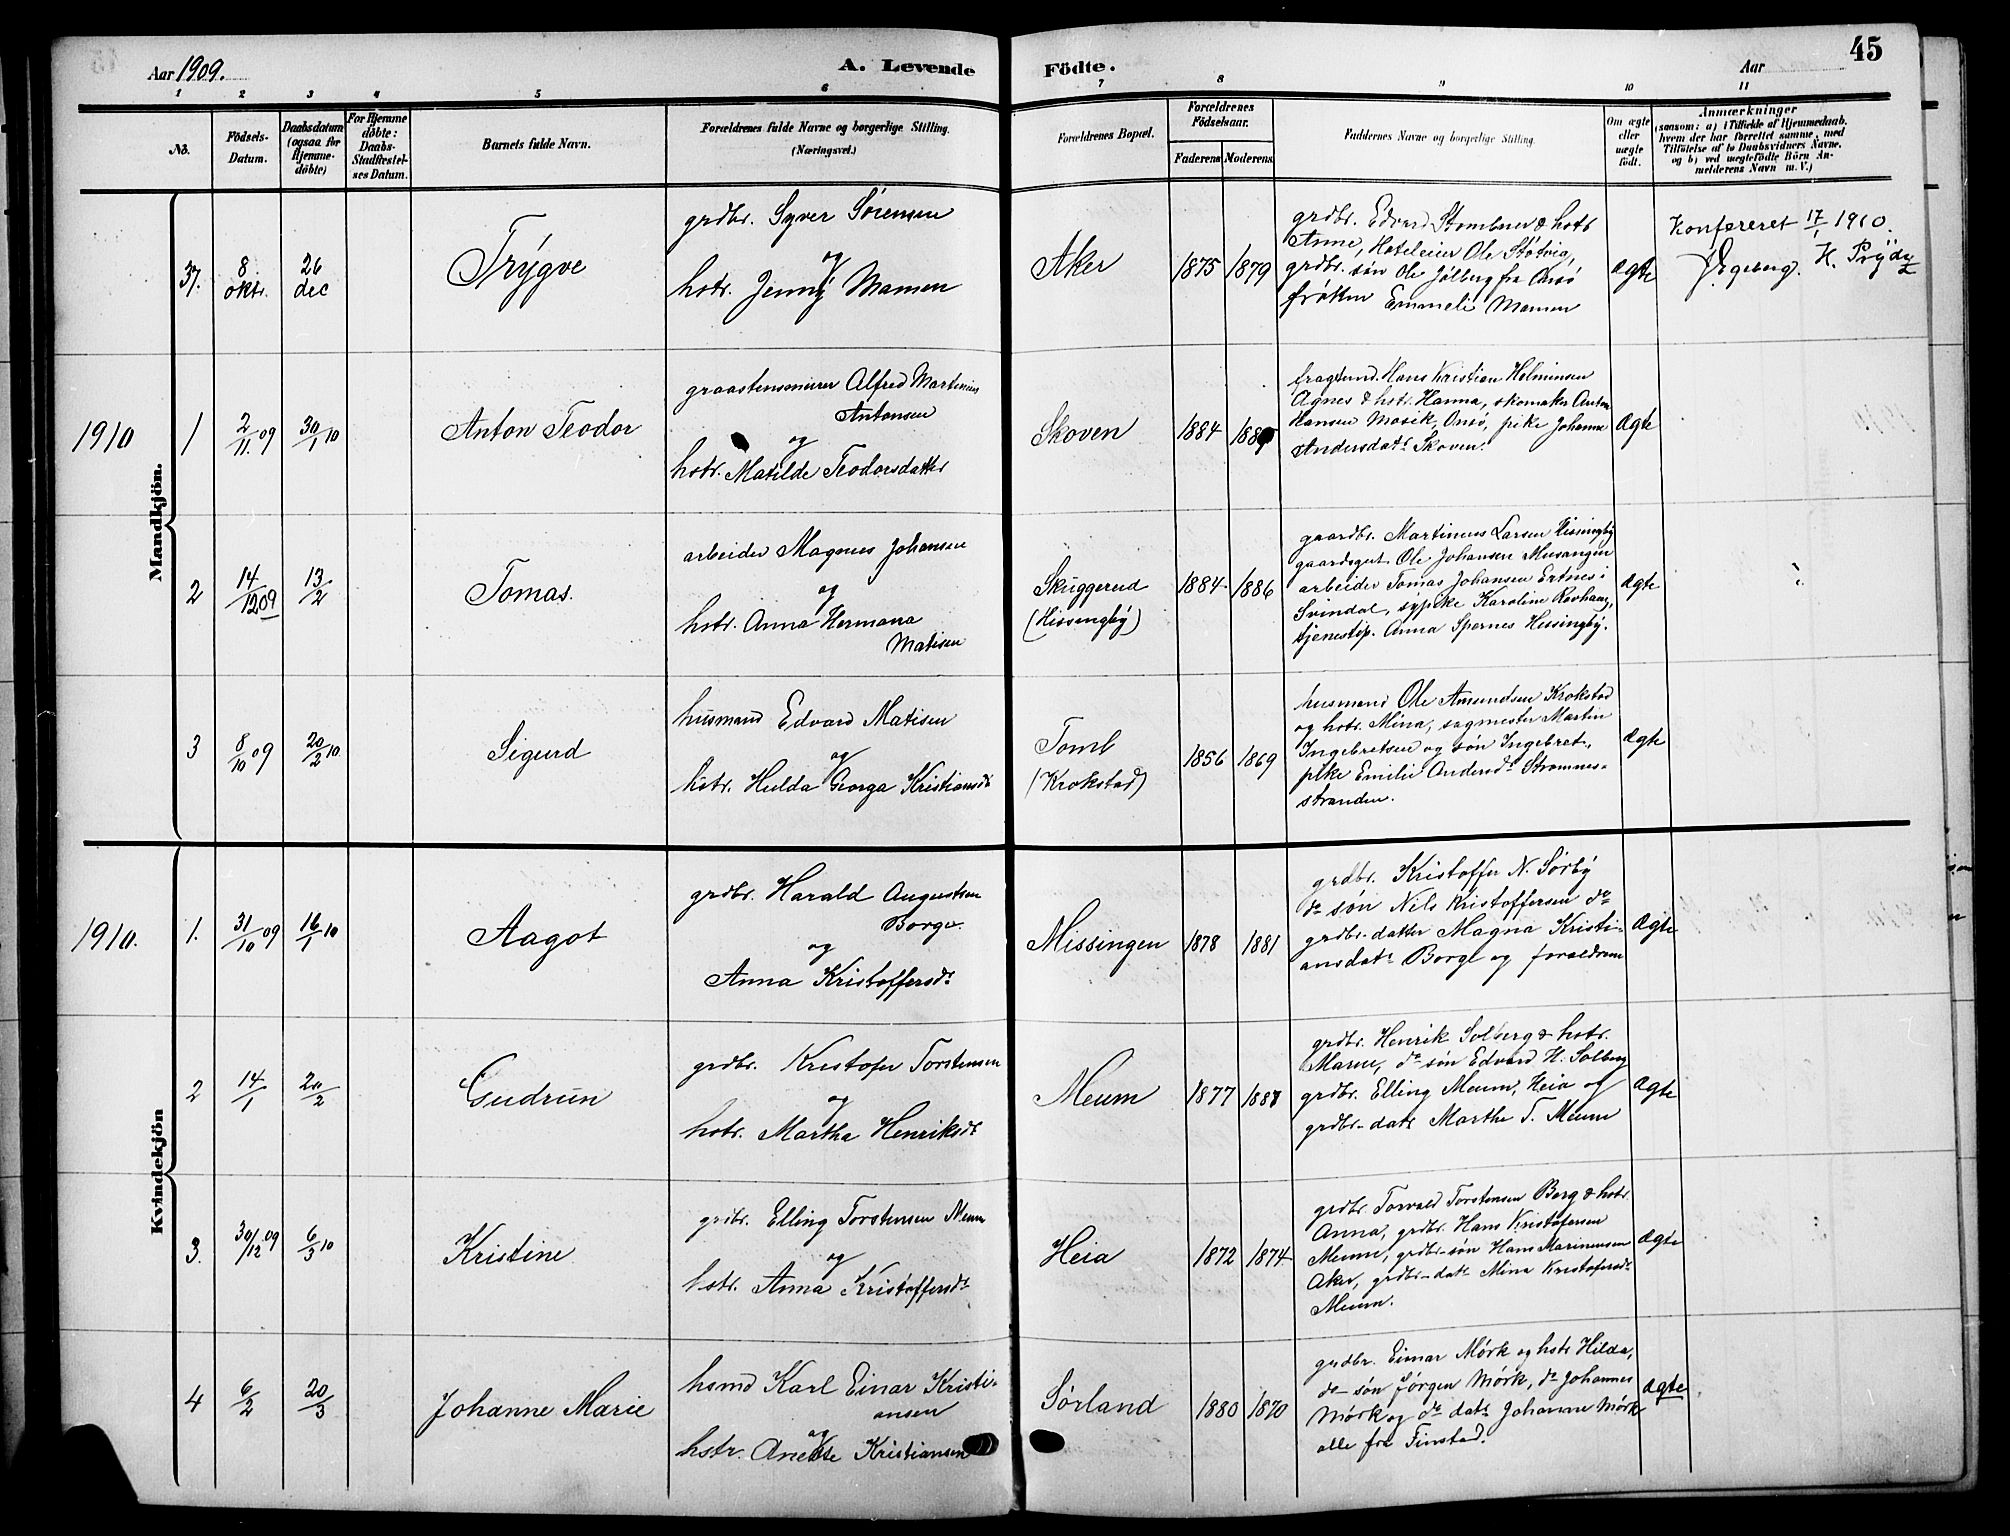 45
Aar 1909.
A. Levende Födte.
Aar
1 2 3 4 5 6 7 8 9 10 11
No.
Födsels-Datum.
Daabsdatum (ogsaa for Hjemme-döbte)
For Hjemme döbte: Daabs-Stadfæstel-ses Datum.
Barnets fulde Navn.
Forældrenes fulde Navne og borgerlige Stilling.
(Næringsvei.)
Forældrenes Bopæl.
Forældrenes Födselsaar.
Faderens Moderens
Faddernes Navne og borgerlige Stilling.
Om ægte eller uægte födt.
Anmærkninger
(saasom: a) i Tilfælde af Hjemmedaab,
hvem der har forrettet samme, med
Tilföielse af to Daabsvidners Navne,
og b) ved uægtefödte Börn An-
melderens Navn m. V.)
Mandkjön.
37.
8 oktr.
26 dec
Trygve
grdbr. Syver Sörensen
og
hstr. Jenny Mamen
Aker
1875 1879
grdbr. Edvard Stomb & hstr
Anne, Hoteleier Ole Støtvig,
grdbr. søn Ole Jølberg fra Onsø
frøken Emmeli Mamen
ægte
Konfereret 17/1 1910.
Egeberg. H. Pryd
1910
1
2/11 09
30/1 10
Anton Teodor
graastensmurer Alfred Martinius
Antonsen
og
hstr. Matilde Teodorsdatter
Skoven
1884
Hans Kristian Helminsen
Agnes & hstr. Hanna, skomaker Anton
Hansen Mosik, Onsö, pike Johanne
Andersdatr Skoven.
ægte
2
14/12 09
13/2
Tomas.
arbeider Magnus Johansen
og
hstr. Anna Hermana
Matisen
Skuggerud
(Hissingby)
1884 1886
gaardbr. Martinus Larsen Hissingby
gaardsgut Ole Johansen Musangen
arbeider Tomas Johansen Ertnes i
Svindal, sypike Karoline Ravhaug,
tjenestep. Anna Spernes Hissingby.
ægte
3
8/10 09
20/2 10
Sigurd
husmand Edvard Matisen
og
hstr. Hulda Georga Kristiansdr
Tomb
(Krokstad)
1856 1869
husmand Ole Amundsen Krokstad
og hstr. Mina, sagmester Martin
Ingebretsen og søn Ingebret,
pike Emilie Andersdr Strømnes-
stranden.
ægte
Kvindekjön
1910.
1.
31/10 09
16/1 10
Aagot
grdbr. Harald Augustsen
Borge.
og
Anna Kristoffersdr
Missingen
1878 1881
grdbr. Kristoffer N. Sørby
do søn Nils Kristoffersen do
grdbr-datter Magna Kristi-
ansdatr Borge og forældrene
ægte
2
14/1
20/2
Gudrun
grdbr. Kristofer Torstensen
og
hstr. Martha Henriksdr
Meum
1877 1887
grdbr. Henrik Solberg & hstr.
Marie, do søn Edvard H. Solberg
grdbr. Elling Meum, Heia og
grdbr-datr Marthe T. Meum
ægte
3.
30/12 09
6/3 10
Kristine
grdbr. Elling Torstensen Meum
og
hstr. Anna Kristoffersdr
Heia
1872 1874
grdbr. Torvald Torstensen Berg & hstr.
Anna, grdbr. Hans Kristofersen
Meum, grdbr-søn Hans Marinussen
Aker, grdbr-datr Mina Kristofersdr
Meum.
ægte
4
6/2
20/3
Johanne Marie
hsmd Karl Einar Kristi-
ansen
og
hstr. Kristiansen
Sørland
1880 1870
grdbr. Einar Mørk og hstr Hilda,
do søn Jørgen Mørk, do Johannes
Mørk og do datr Johanne Mørk
alle fra Finstad.
ægte